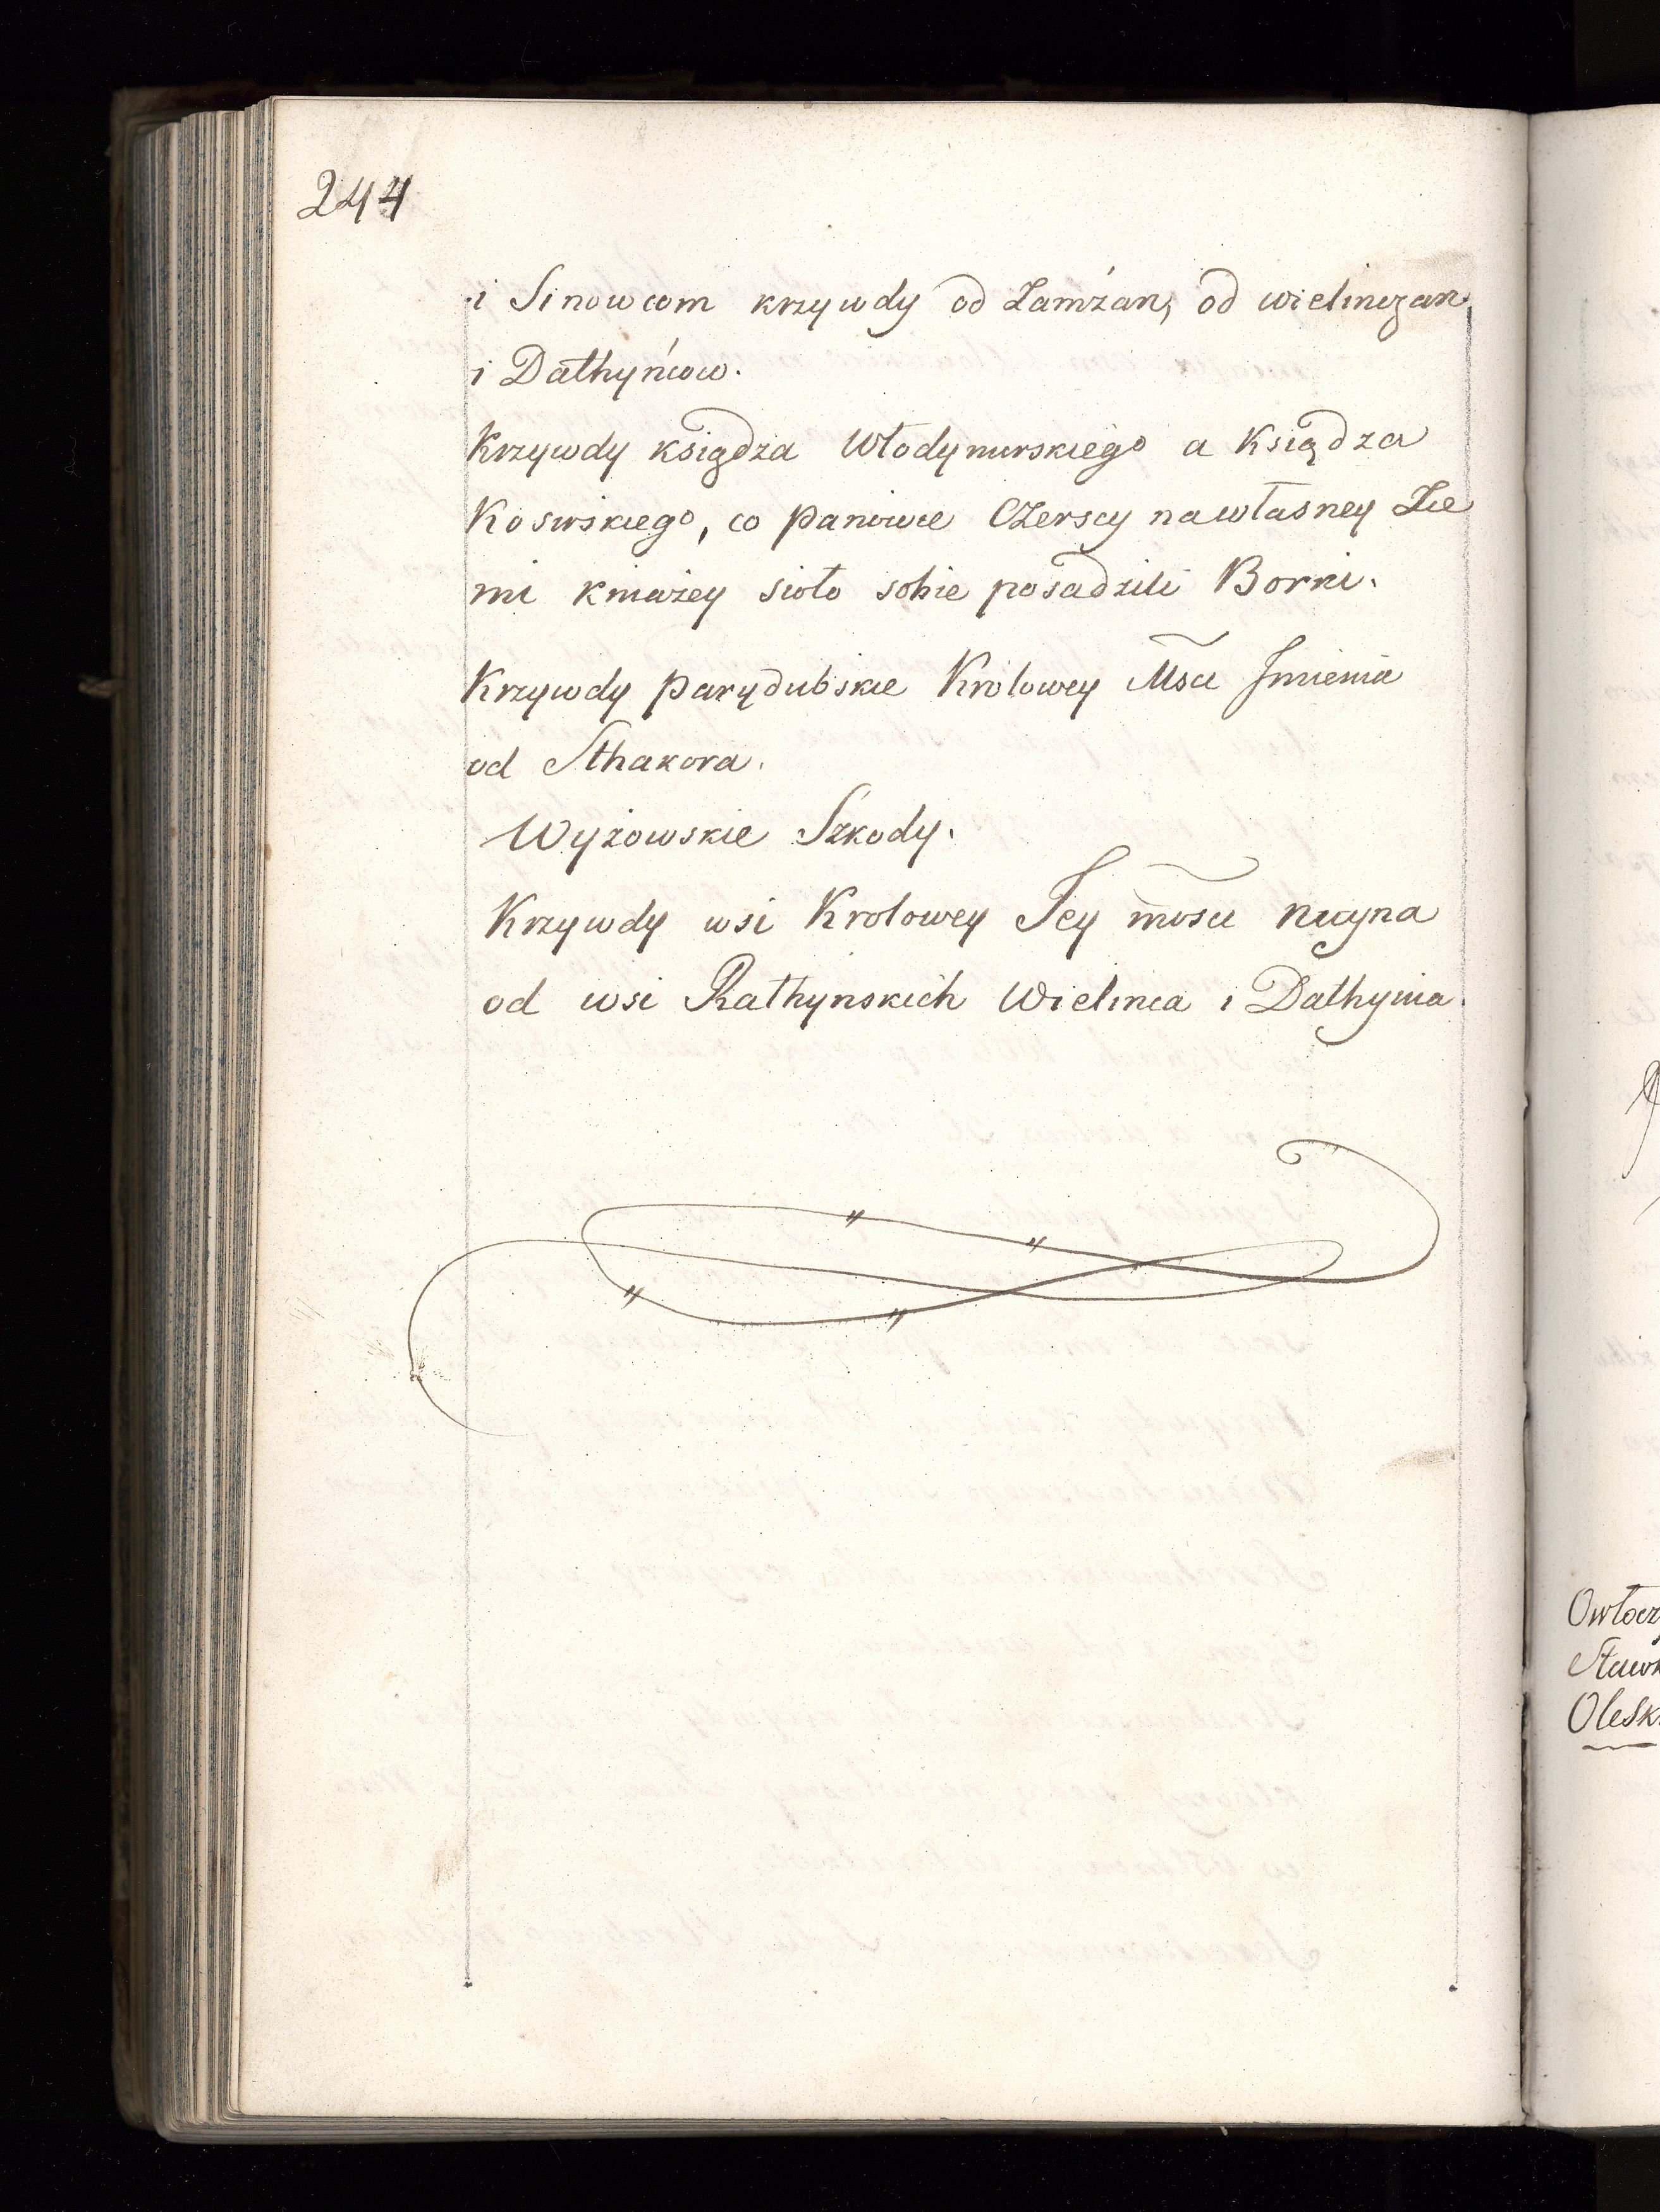 244
i Sinowcom krzywdy od Zamżan, od wielinczan,
i Dathyńcow.
Krzywdy księdza Włodymirskiego a Księdza
Kosirskiego, co panowie Czerscy na własney Zie
mi kniażey sioło sobie posadzili Borki.
Krzywdy parydubskie Krolowey Msci Jmienia
od Sthakora.
Wyżowskie Szkody.
Krzywdy wsi Krolowey Jey mosci nuyna
od wsi Rathynskich Wielinca i Dathynia.
Owłocz
Olesk